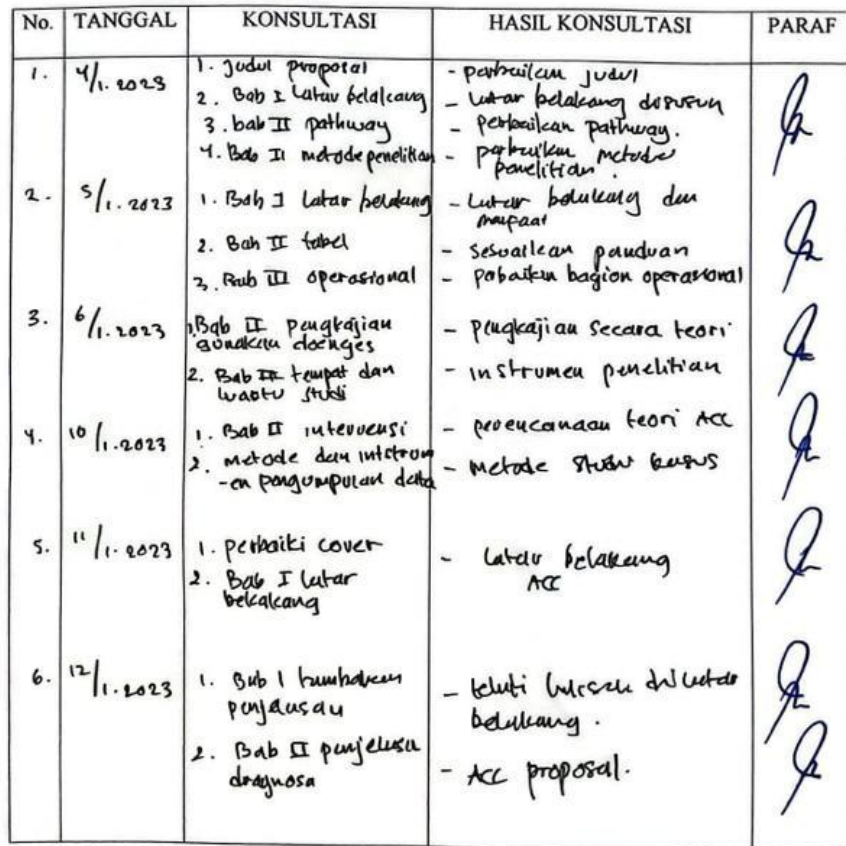 No. TANGGAL KONSULTASI HASIL KONSULTASI PARAF
1. 4/1.2023
1. Judul proposal
2. Bab I Latar belakang
3. bab II pathway
4. Bab II metode penelitian
- perbaikan judul
- Latar belakang disusun
- perbaikan pathway.
- perbaikan metode
penelitian.
2. 5/1.2023
1. Bab I latar belakang
2. Bab II tabel
3. Bab III operasional
- Latar belakang dan
manfaat
- sesuaikan panduan
- perbaikan bagian operasional
3. 6/1.2023
1. Bab II pengkajian
gunakan doenges
2. Bab III tempat dan
waktu studi
- pengkajian secara teori
- instrumen penelitian
4. 10/1.2023
1. Bab II intervensi
2. metode dan intstrum
-en pengumpulan data
- perencanaan teori ACC
- metode studi kasus
5. 11/1.2023
1. perbaiki cover
2. Bab I latar
bekalkang
- latar belakang
ACC
6. 12/1.2023
1. Bab I tambahkan
penjelasan
2. Bab II penjelasa
diagnosa
- teliti latar
belakang.
- ACC proposal.